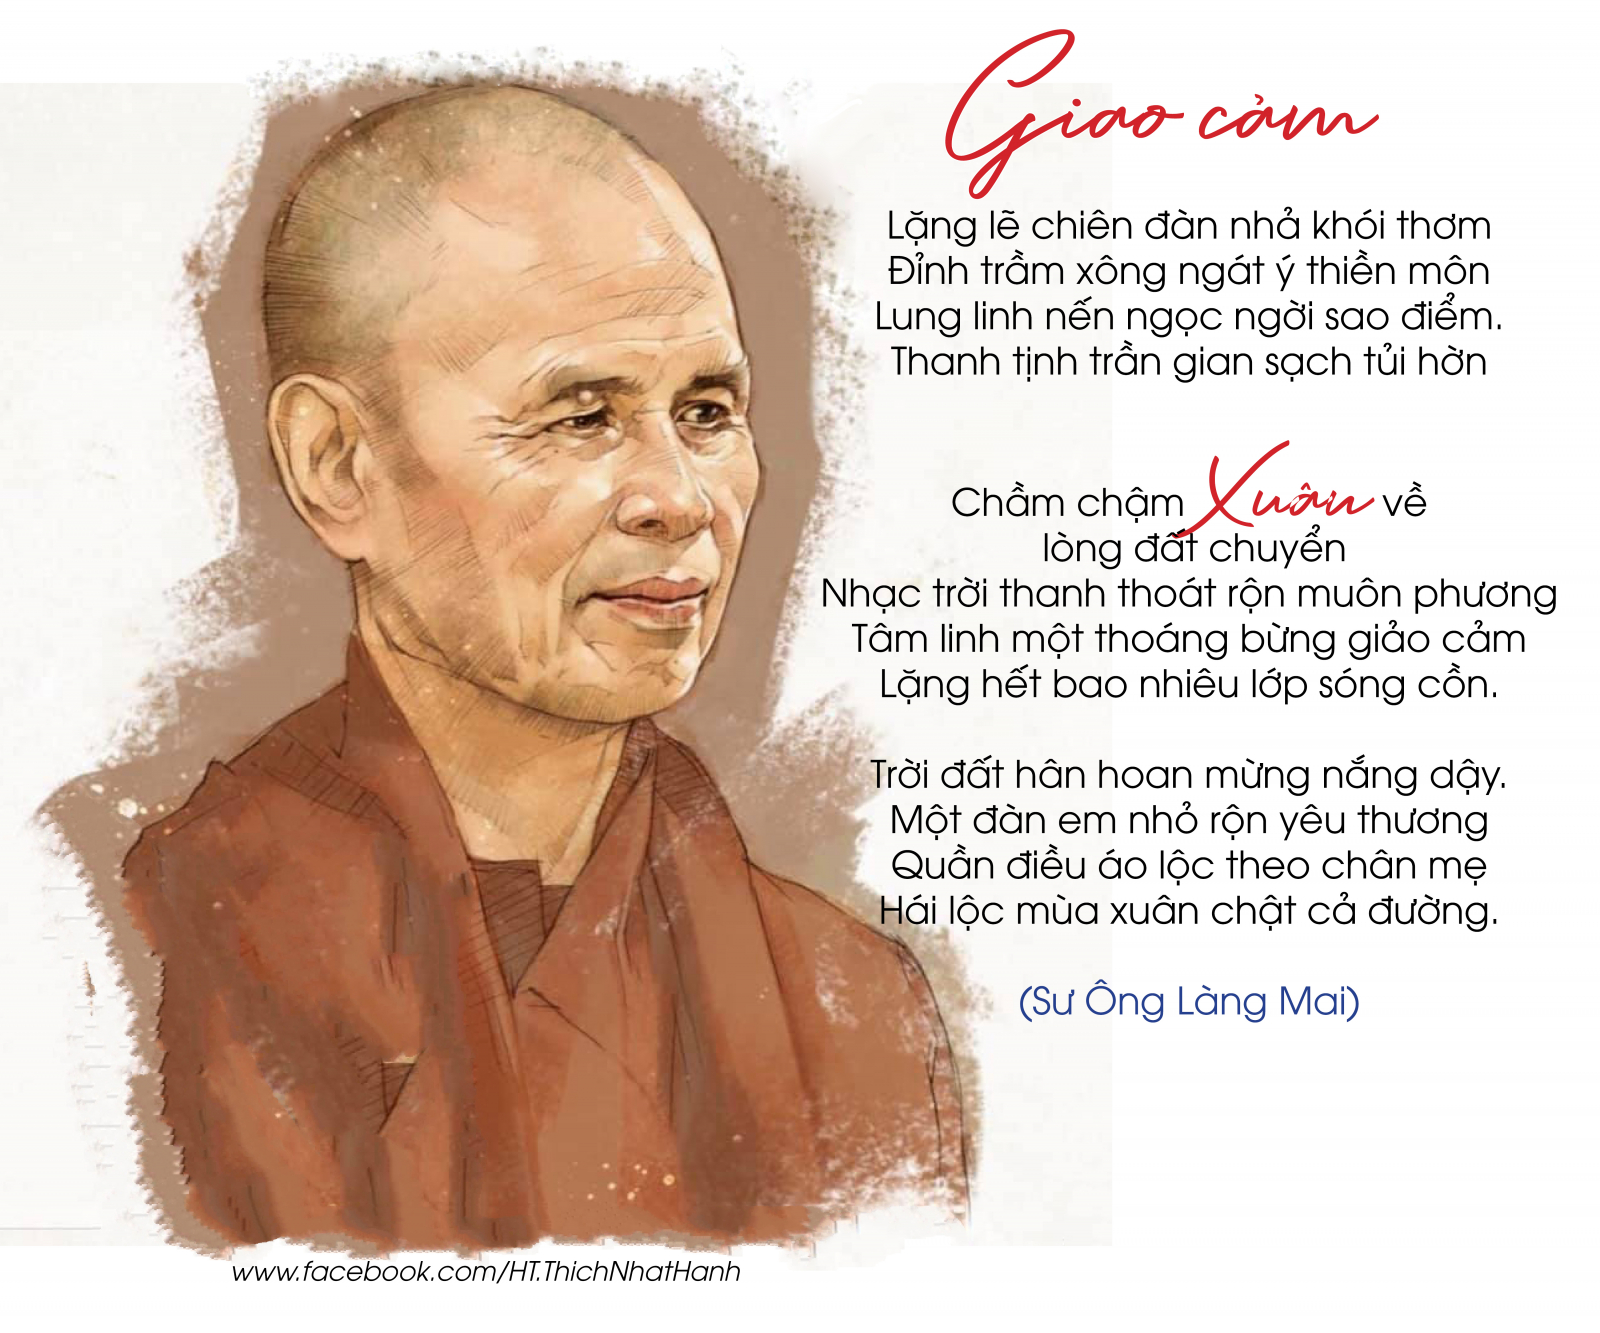 Giao cảm
Lặng lẽ chiên đàn nhả khói thơm
Đỉnh trầm xông ngát ý thiền môn
Lung linh nến ngọc ngời sao điểm.
Thanh tịnh trần gian sạch tủi hờn
Chầm chậm Xuân về
lòng đất chuyển
Nhạc trời thanh thoát rộn muôn phương
Tâm linh một thoáng bừng giảo cảm
Lặng hết bao nhiêu lớp sóng cồn.
Trời đất hân hoan mừng nắng dậy.
Một đàn em nhỏ rộn yêu thương
Quần điều áo lộc theo chân mẹ
Hái lộc mùa xuân chật cả đường.
(Sư Ông Làng Mai)
www.facebook.com/HT.ThichNhatHanh